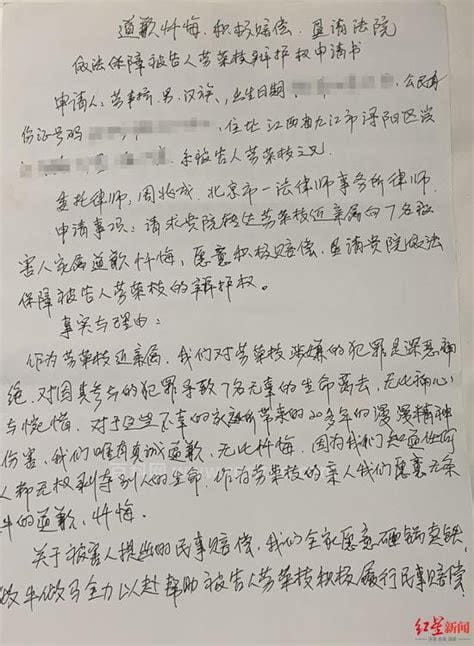 道歉忏悔、积极赔偿、恳请法院
依法保障被告人劳荣枝辩护权申请书
申请人：劳
男，汉族，
出生日期
，公民身
份证号码
，住址江西省九江市浔阳区滨
系被告人劳荣枝之兄。
委托律师：周兆成，北京市一法律师事务所律师。
申请事项：请求贵院转达劳荣枝近亲属向7名被
害人家属道歉忏悔、愿意积极赔偿、恳请贵院依法
保障被告人劳荣枝的辩护权。
事实与理由：
作为劳荣枝近亲属，我们对劳荣枝涉嫌的犯罪是深恶痛
绝，对因其参与的犯罪导致7名无辜的生命离去，无比痛心
与惋惜，对于这些不幸的家庭所带来的20多年的漫漫精神
伤害，我们唯有真诚道歉，无比忏悔。因为我们知道任何
人都无权剥夺别人的生命，作为劳荣枝的亲人我们愿意无条
件的道歉、忏悔。
关于被害人提出的民事赔偿，我们全家愿意砸锅卖铁，
做牛做马全力以赴帮助被告人劳荣枝积极履行民事赔偿
红星新闻